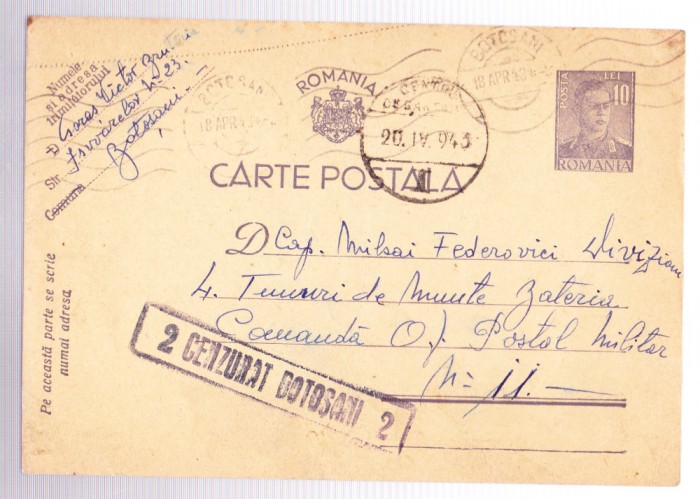 Numele
și adresa
trimițătorului
D
Str
Comuna
Victor
23.
Isvoarelor
Botosani
BOTOSANI
18 APR
BOTOSANI
18 APR
ROMANIA
20. IV. 943
POSTA
LEI
10
ROMANIA
CARTE POSTALA
D Cap. Mihai Federovici Divizion
4. Tunuri de Munte Bateria
Comandă O.J. Postal Militar
Nº 11. —
2 CENZURAT BOTOȘANI 2
Pe această parte se scrie
numai adresa